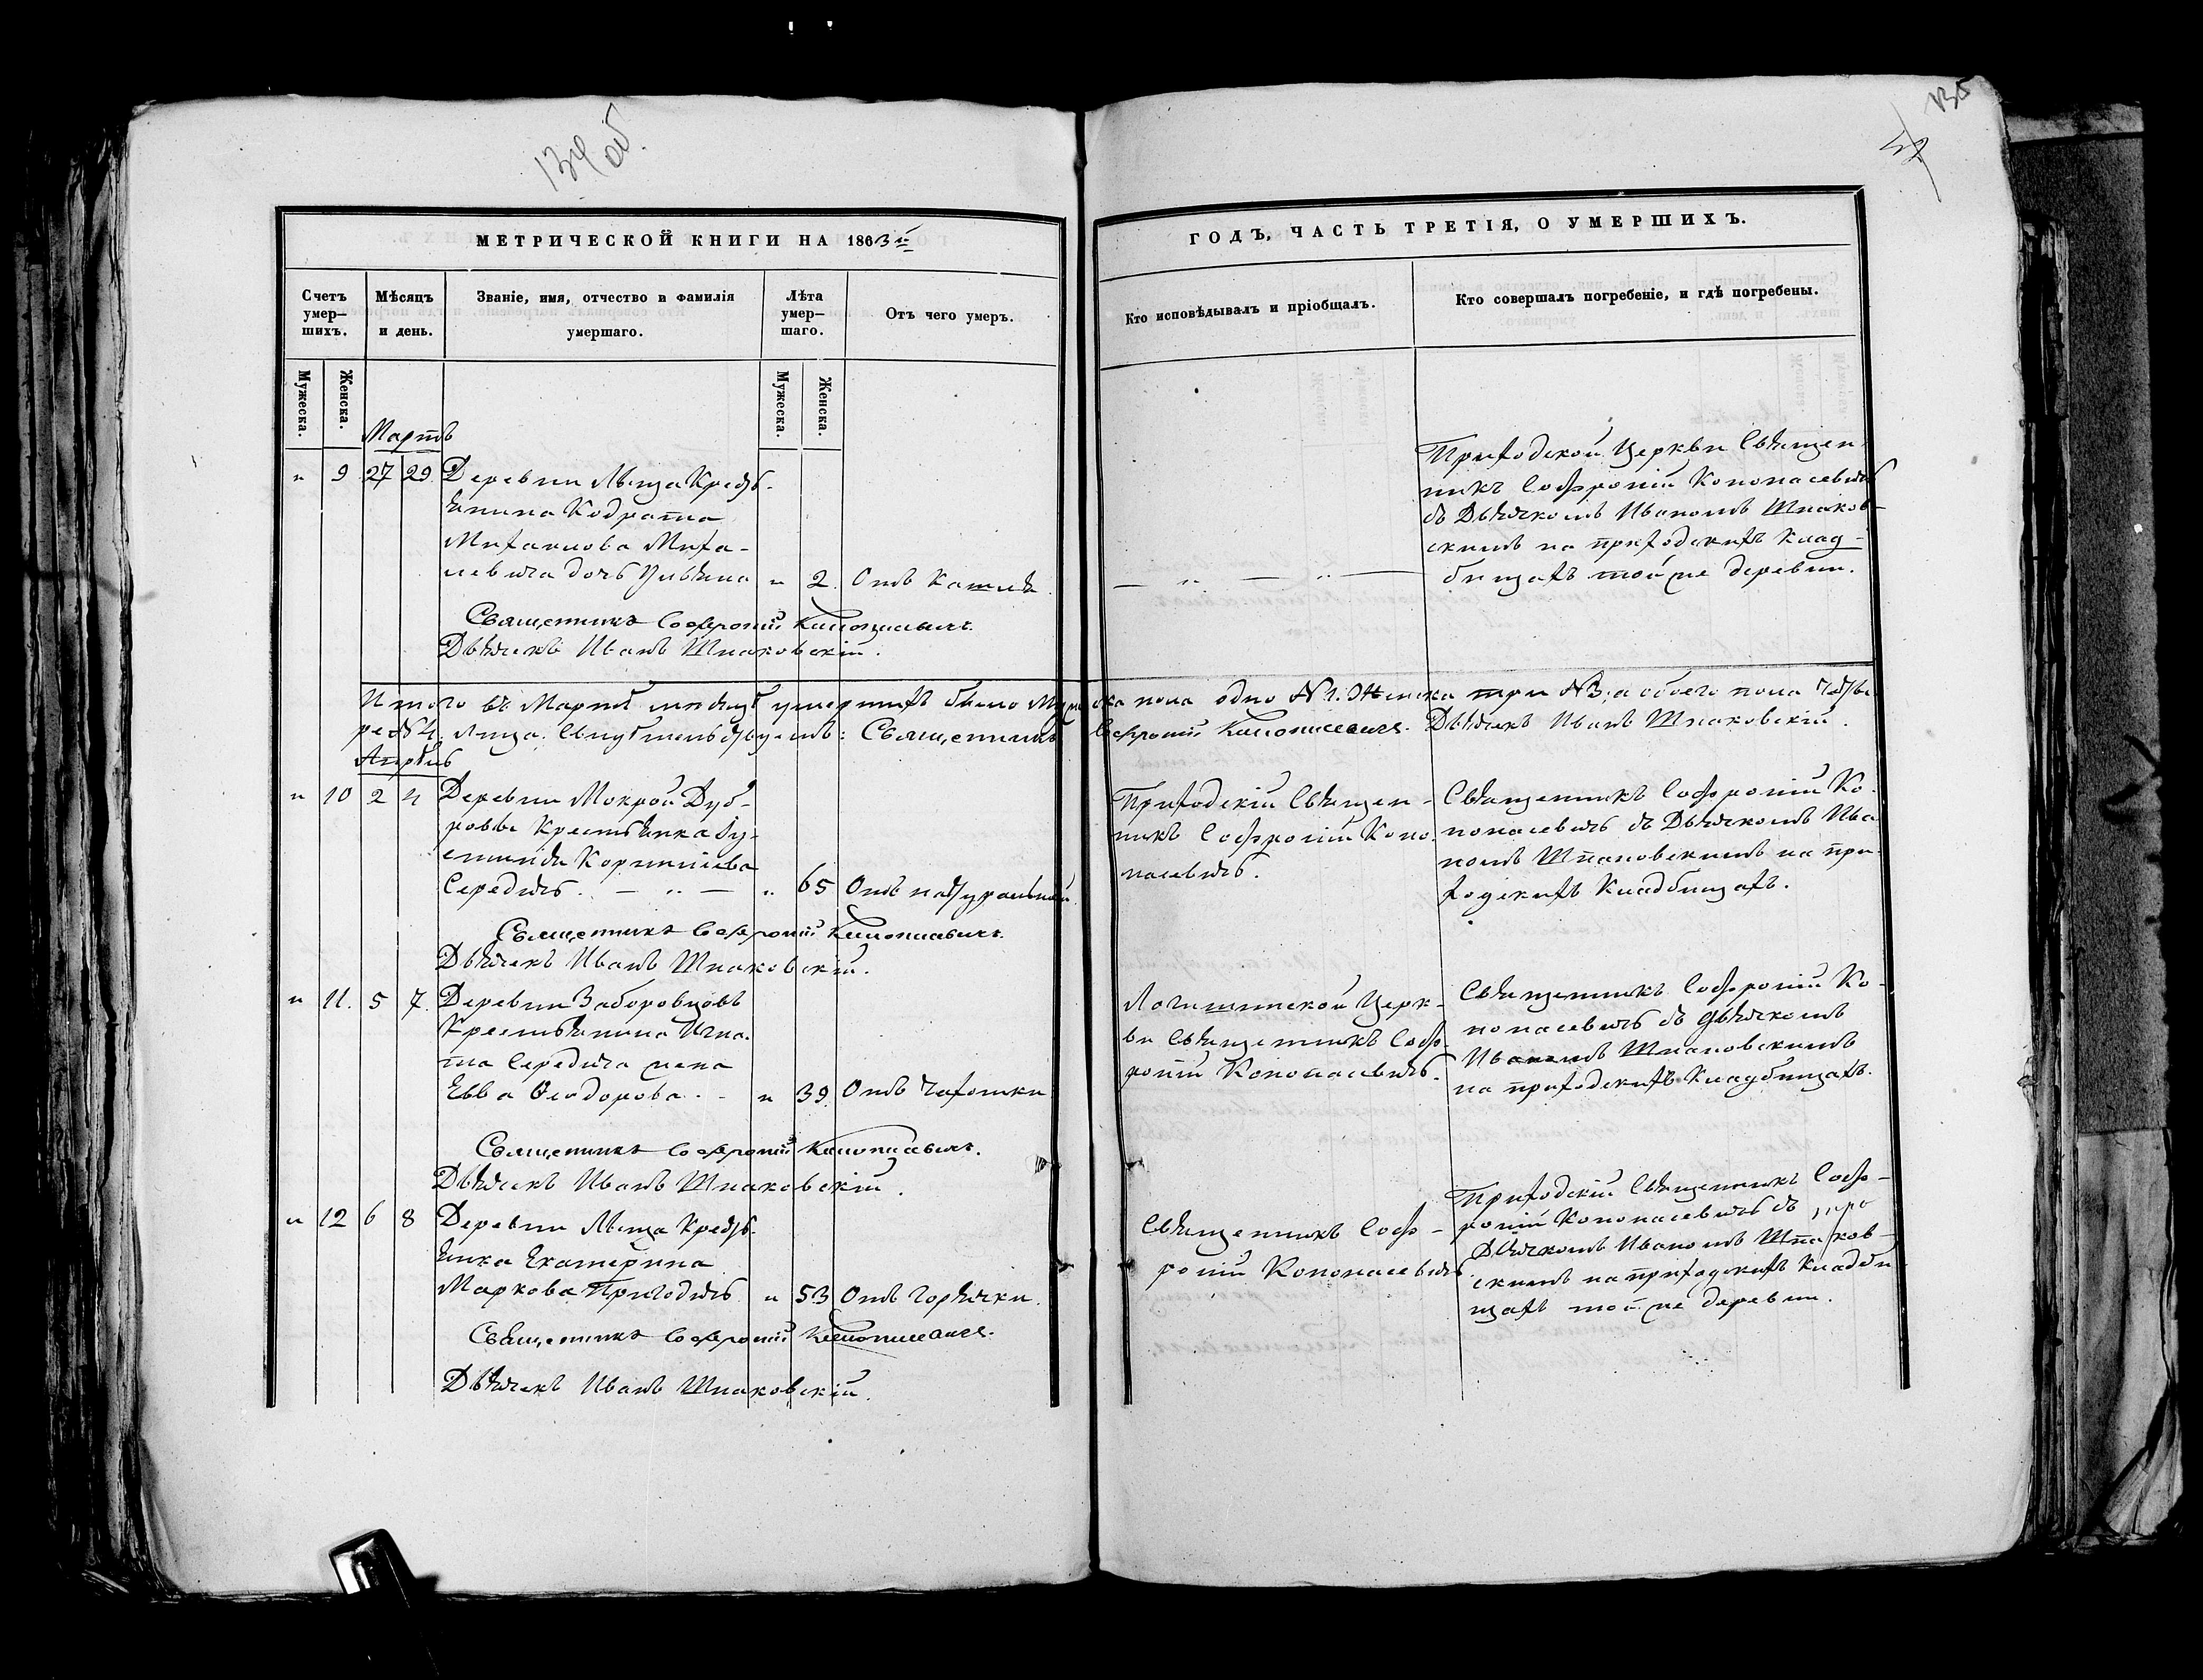 134 об.
135
МЕТРИЧЕСКОЙ КНИГИ НА 1863й
ГОДЪ, ЧАСТЬ ТРЕТІЯ, О УМЕРШИХЪ.
Счетъ умер—шихъ.
Мѣсяцъ и день.
Званіе, имя, отчество и фамилія умершаго.
Лѣта умер—шаго.
Отъ чего умеръ.
Кто исповѣдывалъ и пріобщалъ.
Кто совершалъ погребеніе, и гдѣ погребены.
Мужеска.
Женска.
Мужеска.
Женска.
Мартъ
„ 9 27 29 Деревни Лыща Крестъ-
янина Кодрата
Михаилова Миха-
левича дочь Ульяна „ 2. Отъ Кашля.
Священникъ Софроній Конопасевичъ.
Дьячекъ Иванъ Шпаковскій.
— „ — „ —
Приходской Церкви Священ-
никъ Софроній Конопасевичъ
съ Дьячкомъ Иваномъ Шпаков-
скимъ на приходскихъ клад-
бищахъ той же деревни.
Итого въ Мартѣ мѣсяцѣ умершихъ было Мужеска пола одно №1. Женска три №3, а обоего пола четы-
ре №4. лица. Свидѣтельствуемъ: Священникъ Софроній Конопасевичъ. Дьячекъ Иванъ Шпаковскій.
Апрѣль
„ 10 2 4 Деревни Мокрой Дуб-
ровы Крестьянка Іу-
стинія Корнилева
Середичъ. — „ — „ 65 Отъ натуральной.
Священникъ Софроній Конопасевичъ.
Дьячекъ Иванъ Шпаковскій.
Приходскій Священ-
никъ Софроній Коно-
пасевичъ.
Священникъ Софроній Ко-
нопасевичъ съ Дьячкомъ Ива-
номъ Шпаковскимъ на при-
ходскихъ Кладбищахъ.
„ 11. 5 7. Деревни Заборовцовъ
Крестьянина Игна-
та Середича жена
Евва Ѳеодорова. - „ 39. Отъ Чахотки
Священникъ Софроній Конопасевичъ.
Дьячекъ Иванъ Шпаковскій.
Логишинской Церк-
ви Священникъ Соф-
роній Конопасевичъ.
Священникъ Софроній Ко-
нопасевичъ съ дьячкомъ
Иваномъ Шпаковскимъ
на приходскихъ Кладбищахъ.
„ 12 6 8 Деревни Лыща Крестъ-
янка Екатерина
Маркова Пригодичъ „ 53 Отъ Горячки.
Священникъ Софроній Конопасевичъ.
Дьячекъ Иванъ Шпаковскій.
Священникъ Соф-
роній Конопасевичъ.
Приходскій Священникъ Соф-
роній Конопасевичъ съ
Дьячкомъ Иваномъ Шпаков-
скимъ на приходскихъ Кладби
щахъ той же деревни.